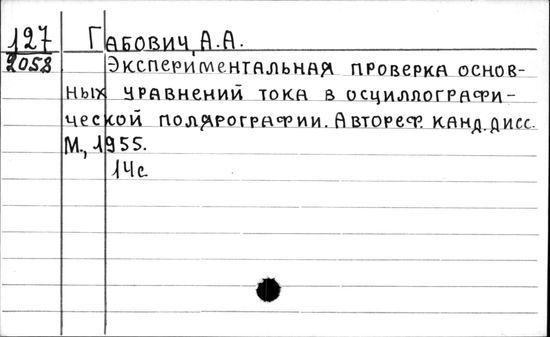 127 Габович, А.А.
2058 Экспериментальная проверка основ-
ных уравнений тока в осциллографи-
ческой полярографии. Автореф. канд. дисс.
М., 1955.
14с.